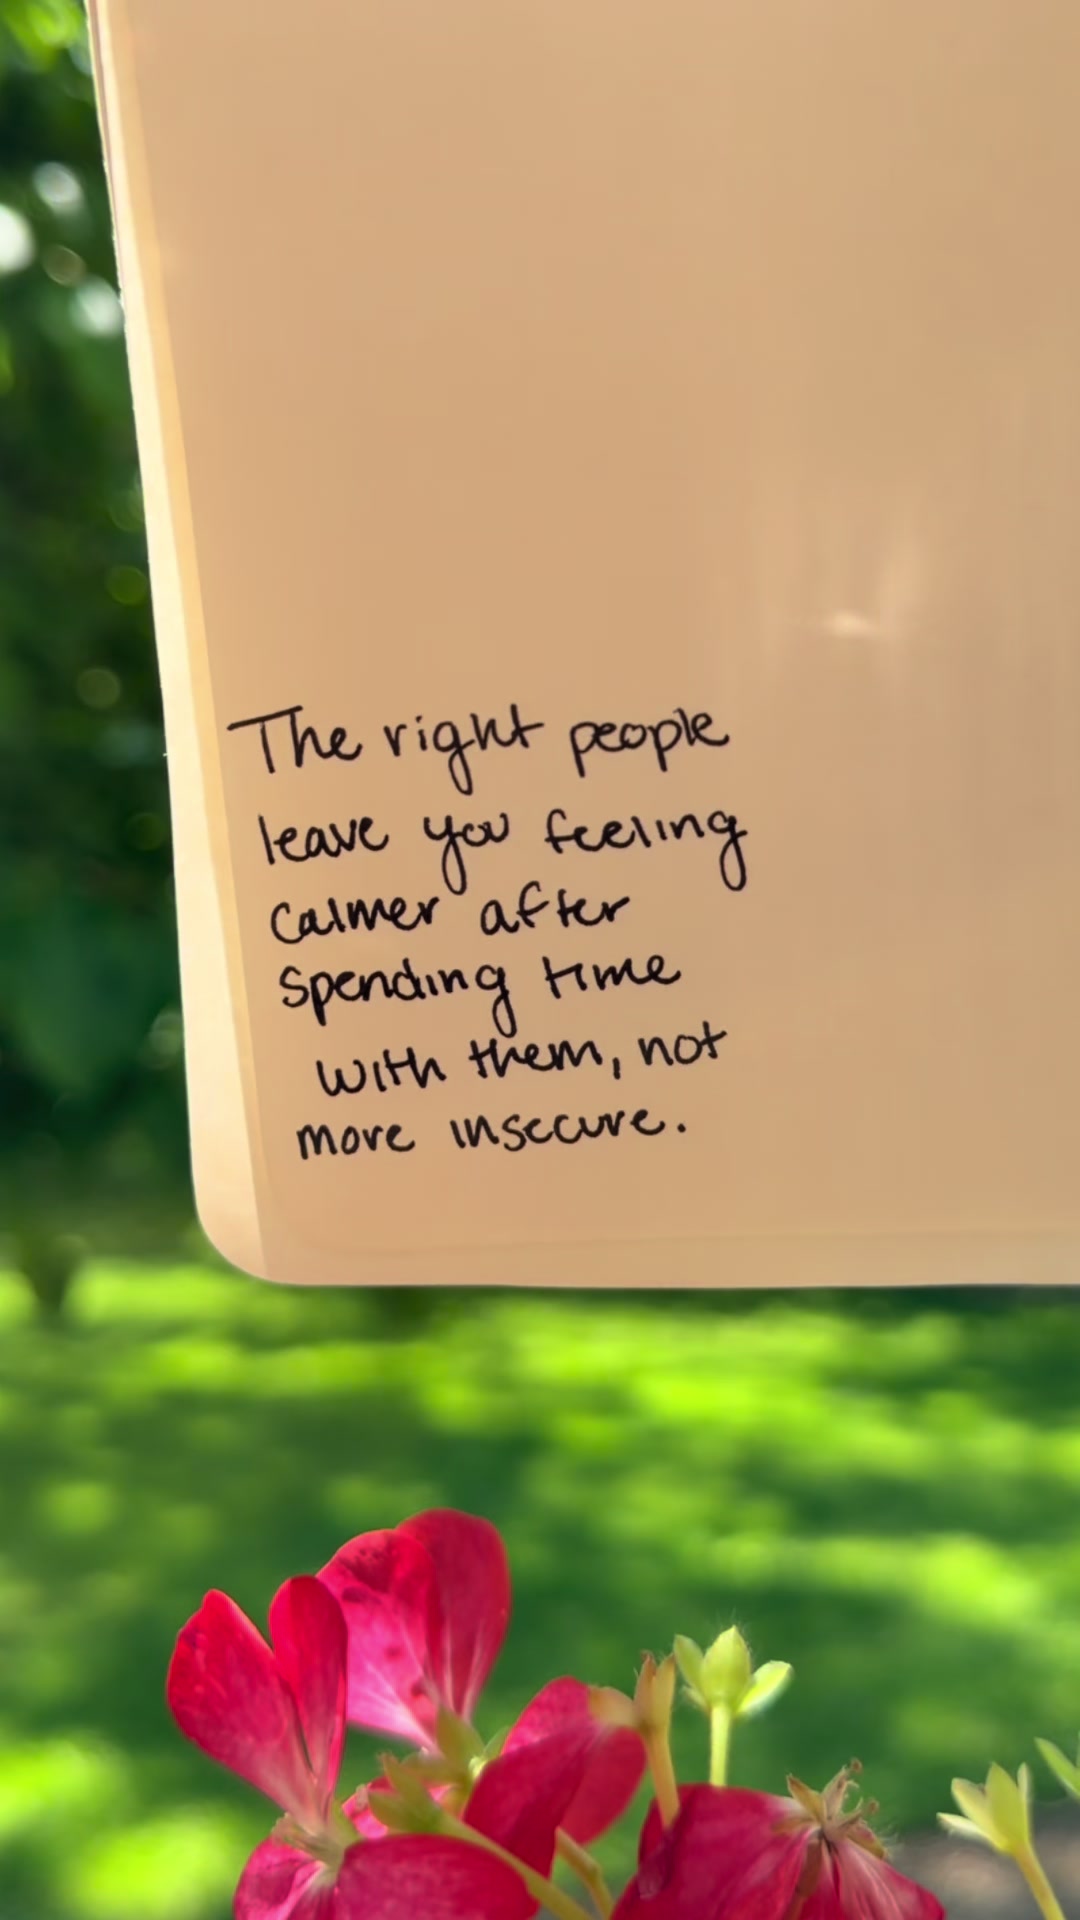 The right people
leave you feeling
calmer after
spending time
with them, not
more insecure.